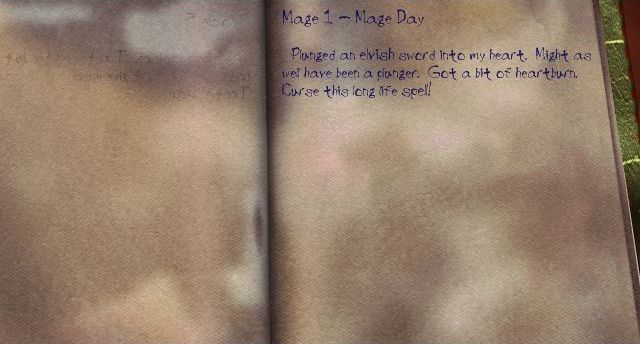 Mage 1 - Mage Day
Plunged an elvish sword into my heart. Might as
well have been a plunger. Got a bit of heartburn.
Curse this long life spell!